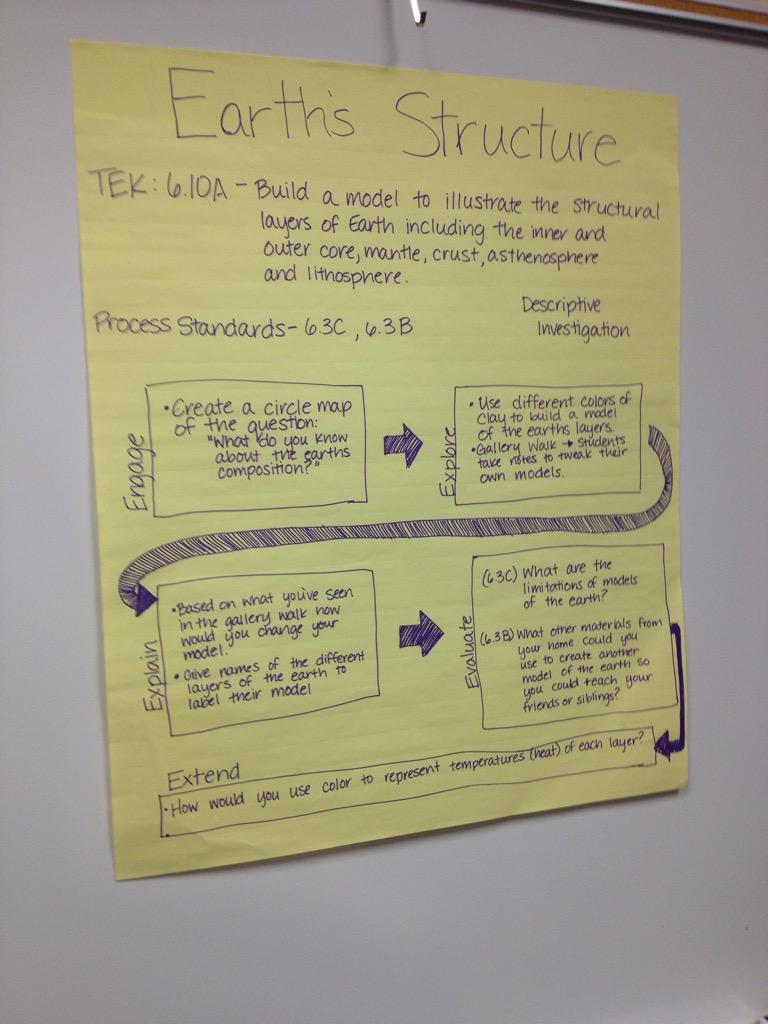 Earth's Structure
TEK: 6.10A - Build a model to illustrate the structural
layers of Earth including the inner and
outer core, mantle, crust, asthenosphere
and lithosphere.
Process Standards - 6.3C, 6.3B
Descriptive
Investigation
Engage
• Create a circle map
of the question:
"What do you know
about the earths
composition?"
Explore
• Use different colors of
clay to build a model
of the earths layers.
• Gallery Walk → students
take notes to tweak their
own models.
Explain
• Based on what you've seen
in the gallery walk how
would you change your
model.
• Give names of the different
layers of the earth to
label their model
Evaluate
(6.3C) What are the
limitations of models
of the earth?
(6.3B) What other materials from
your home could you
use to create another
model of the earth so
you could teach your
friends or siblings?
Extend
• How would you use color to represent temperatures (heat) of each layer?